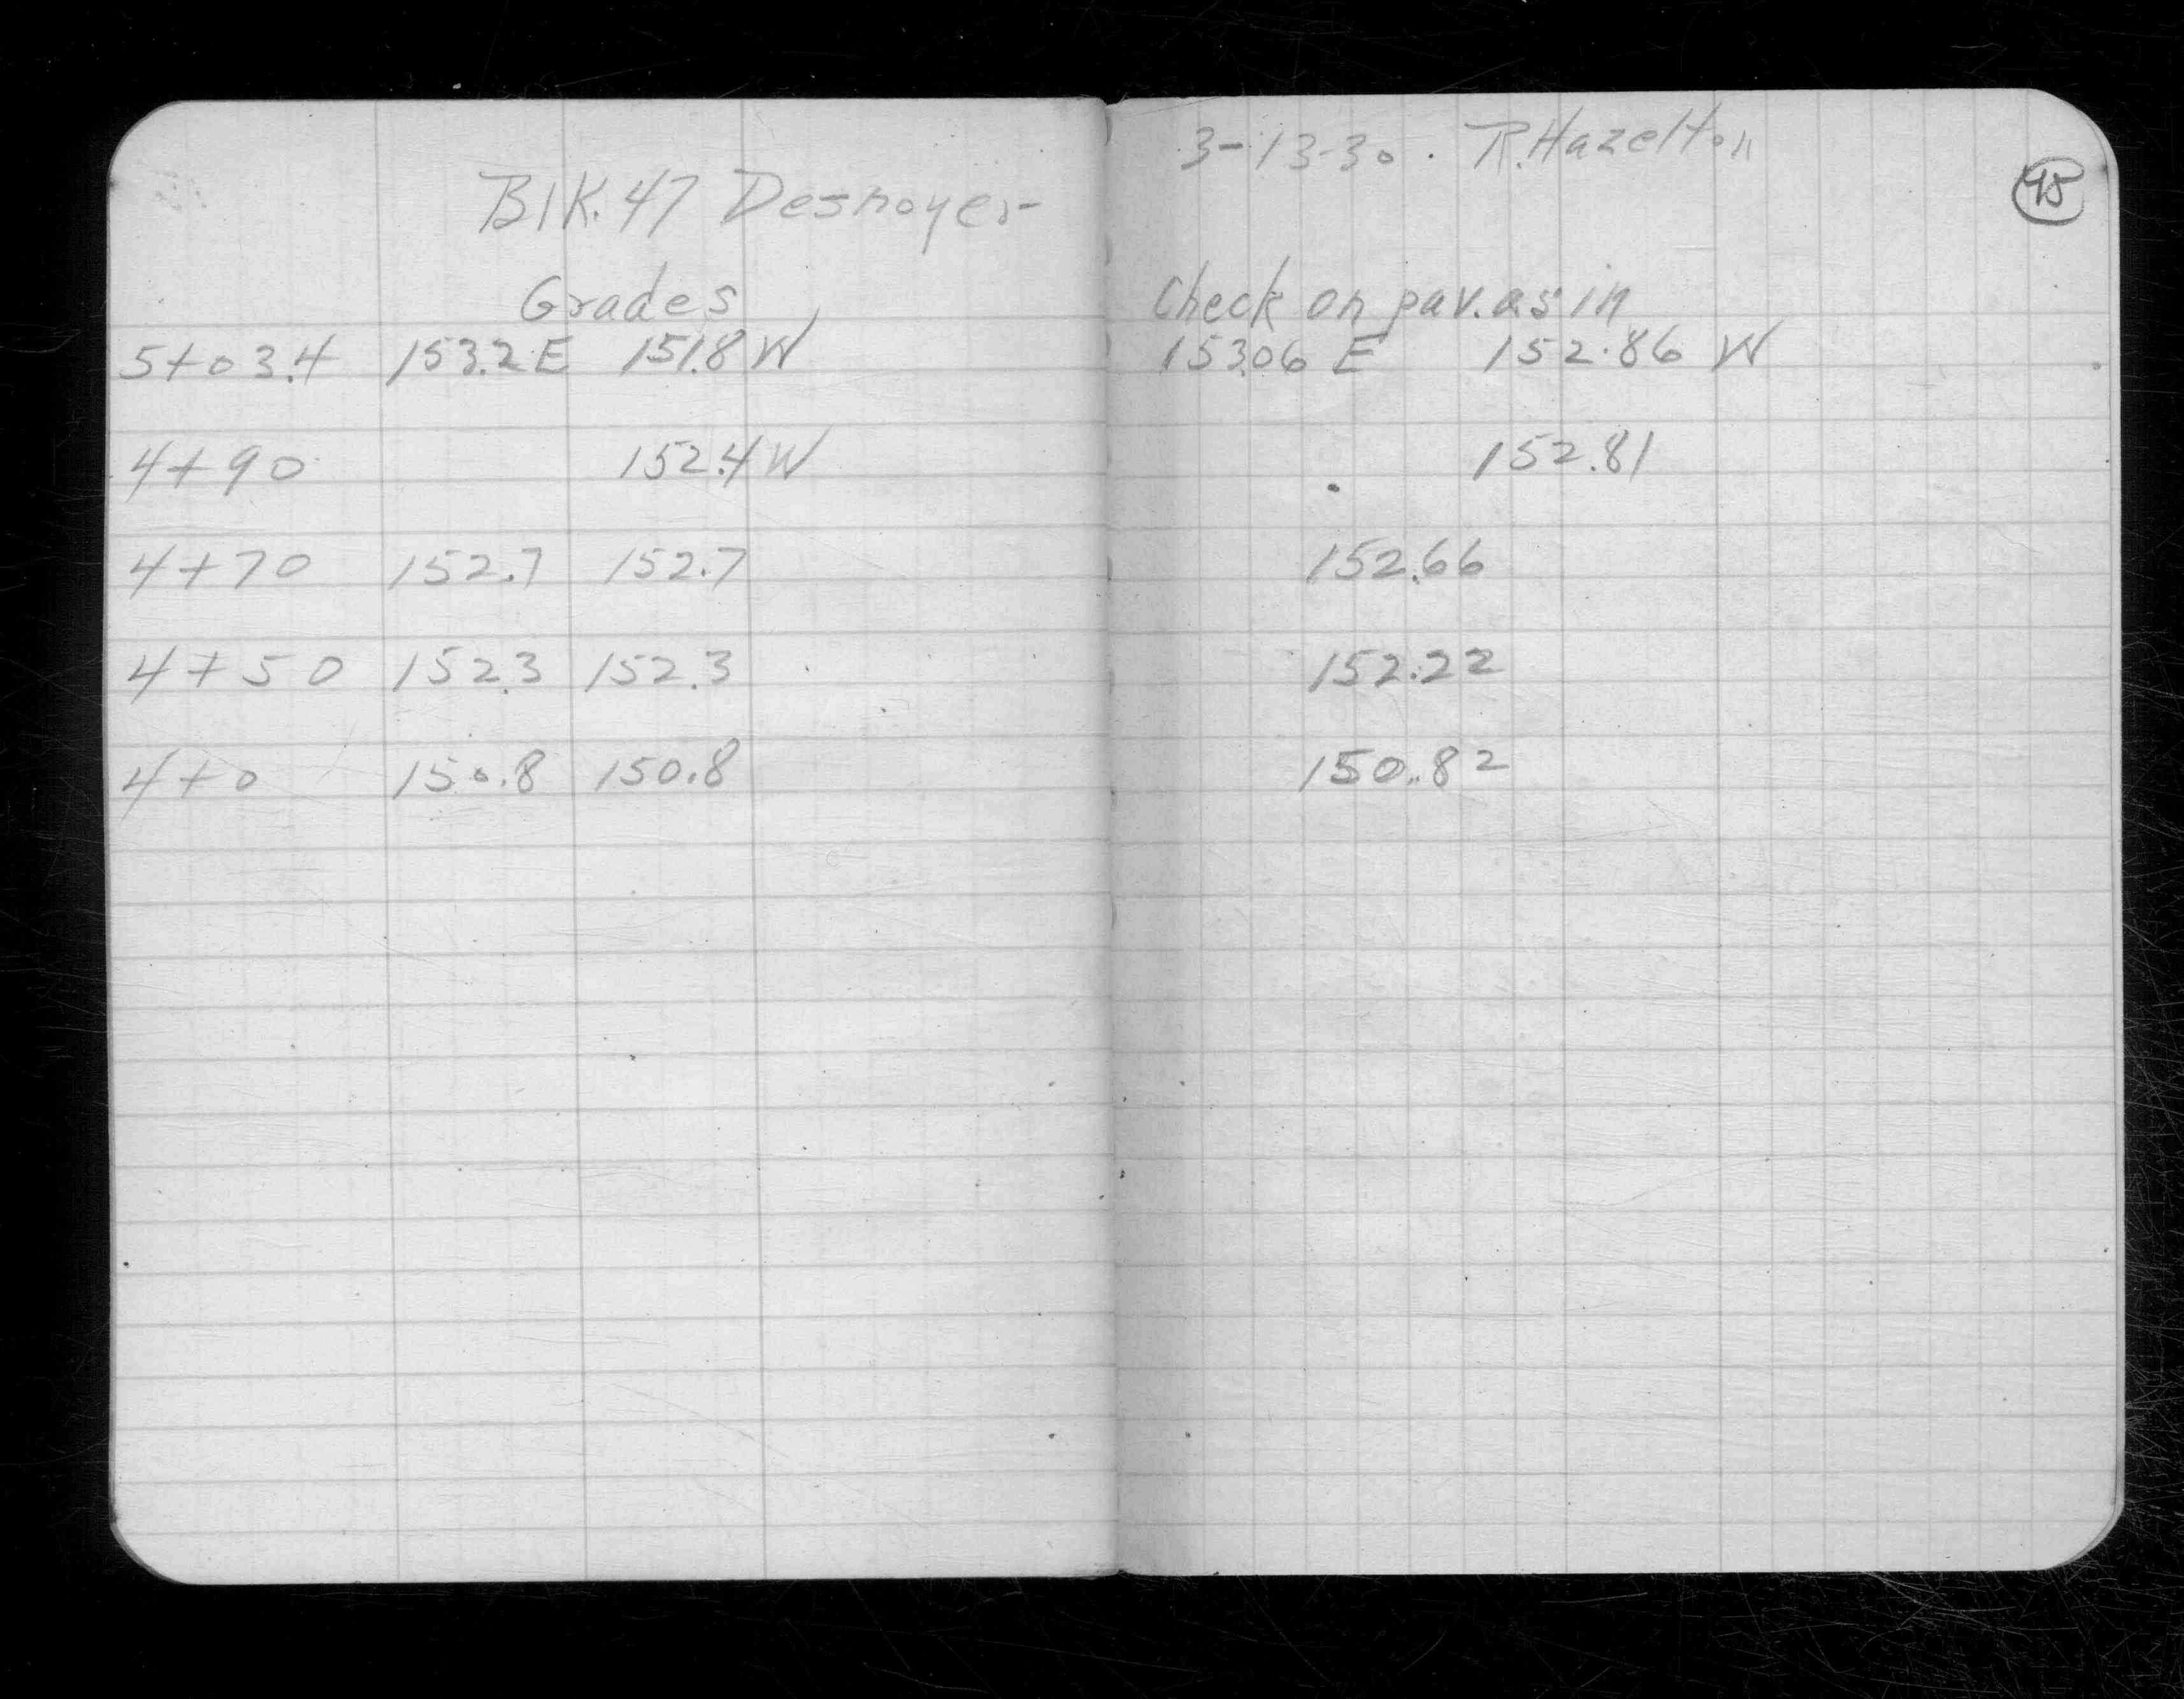 Blk. 47 Desnoyer
Grades
5+03.4 153.2 E 151.8 W
4+90 152.4 W
4+70 152.7 152.7
4+50 152.3 152.3
4+0 150.8 150.8
3-13-30. R. Hazelton
45
Check on pav. as in
153.06 E 152.86 W
152.81
152.66
152.22
150.82